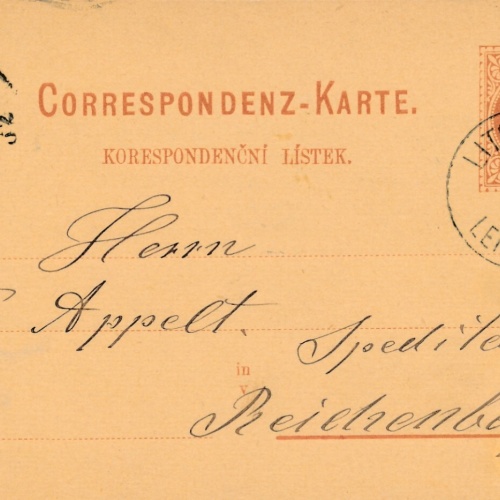 CORRESPONDENZ-KARTE.
KORESPONDENČNÍ LÍSTEK.
Herrn
Appelt. Spedite
in
v
Reichenb
LIT
LEI
52